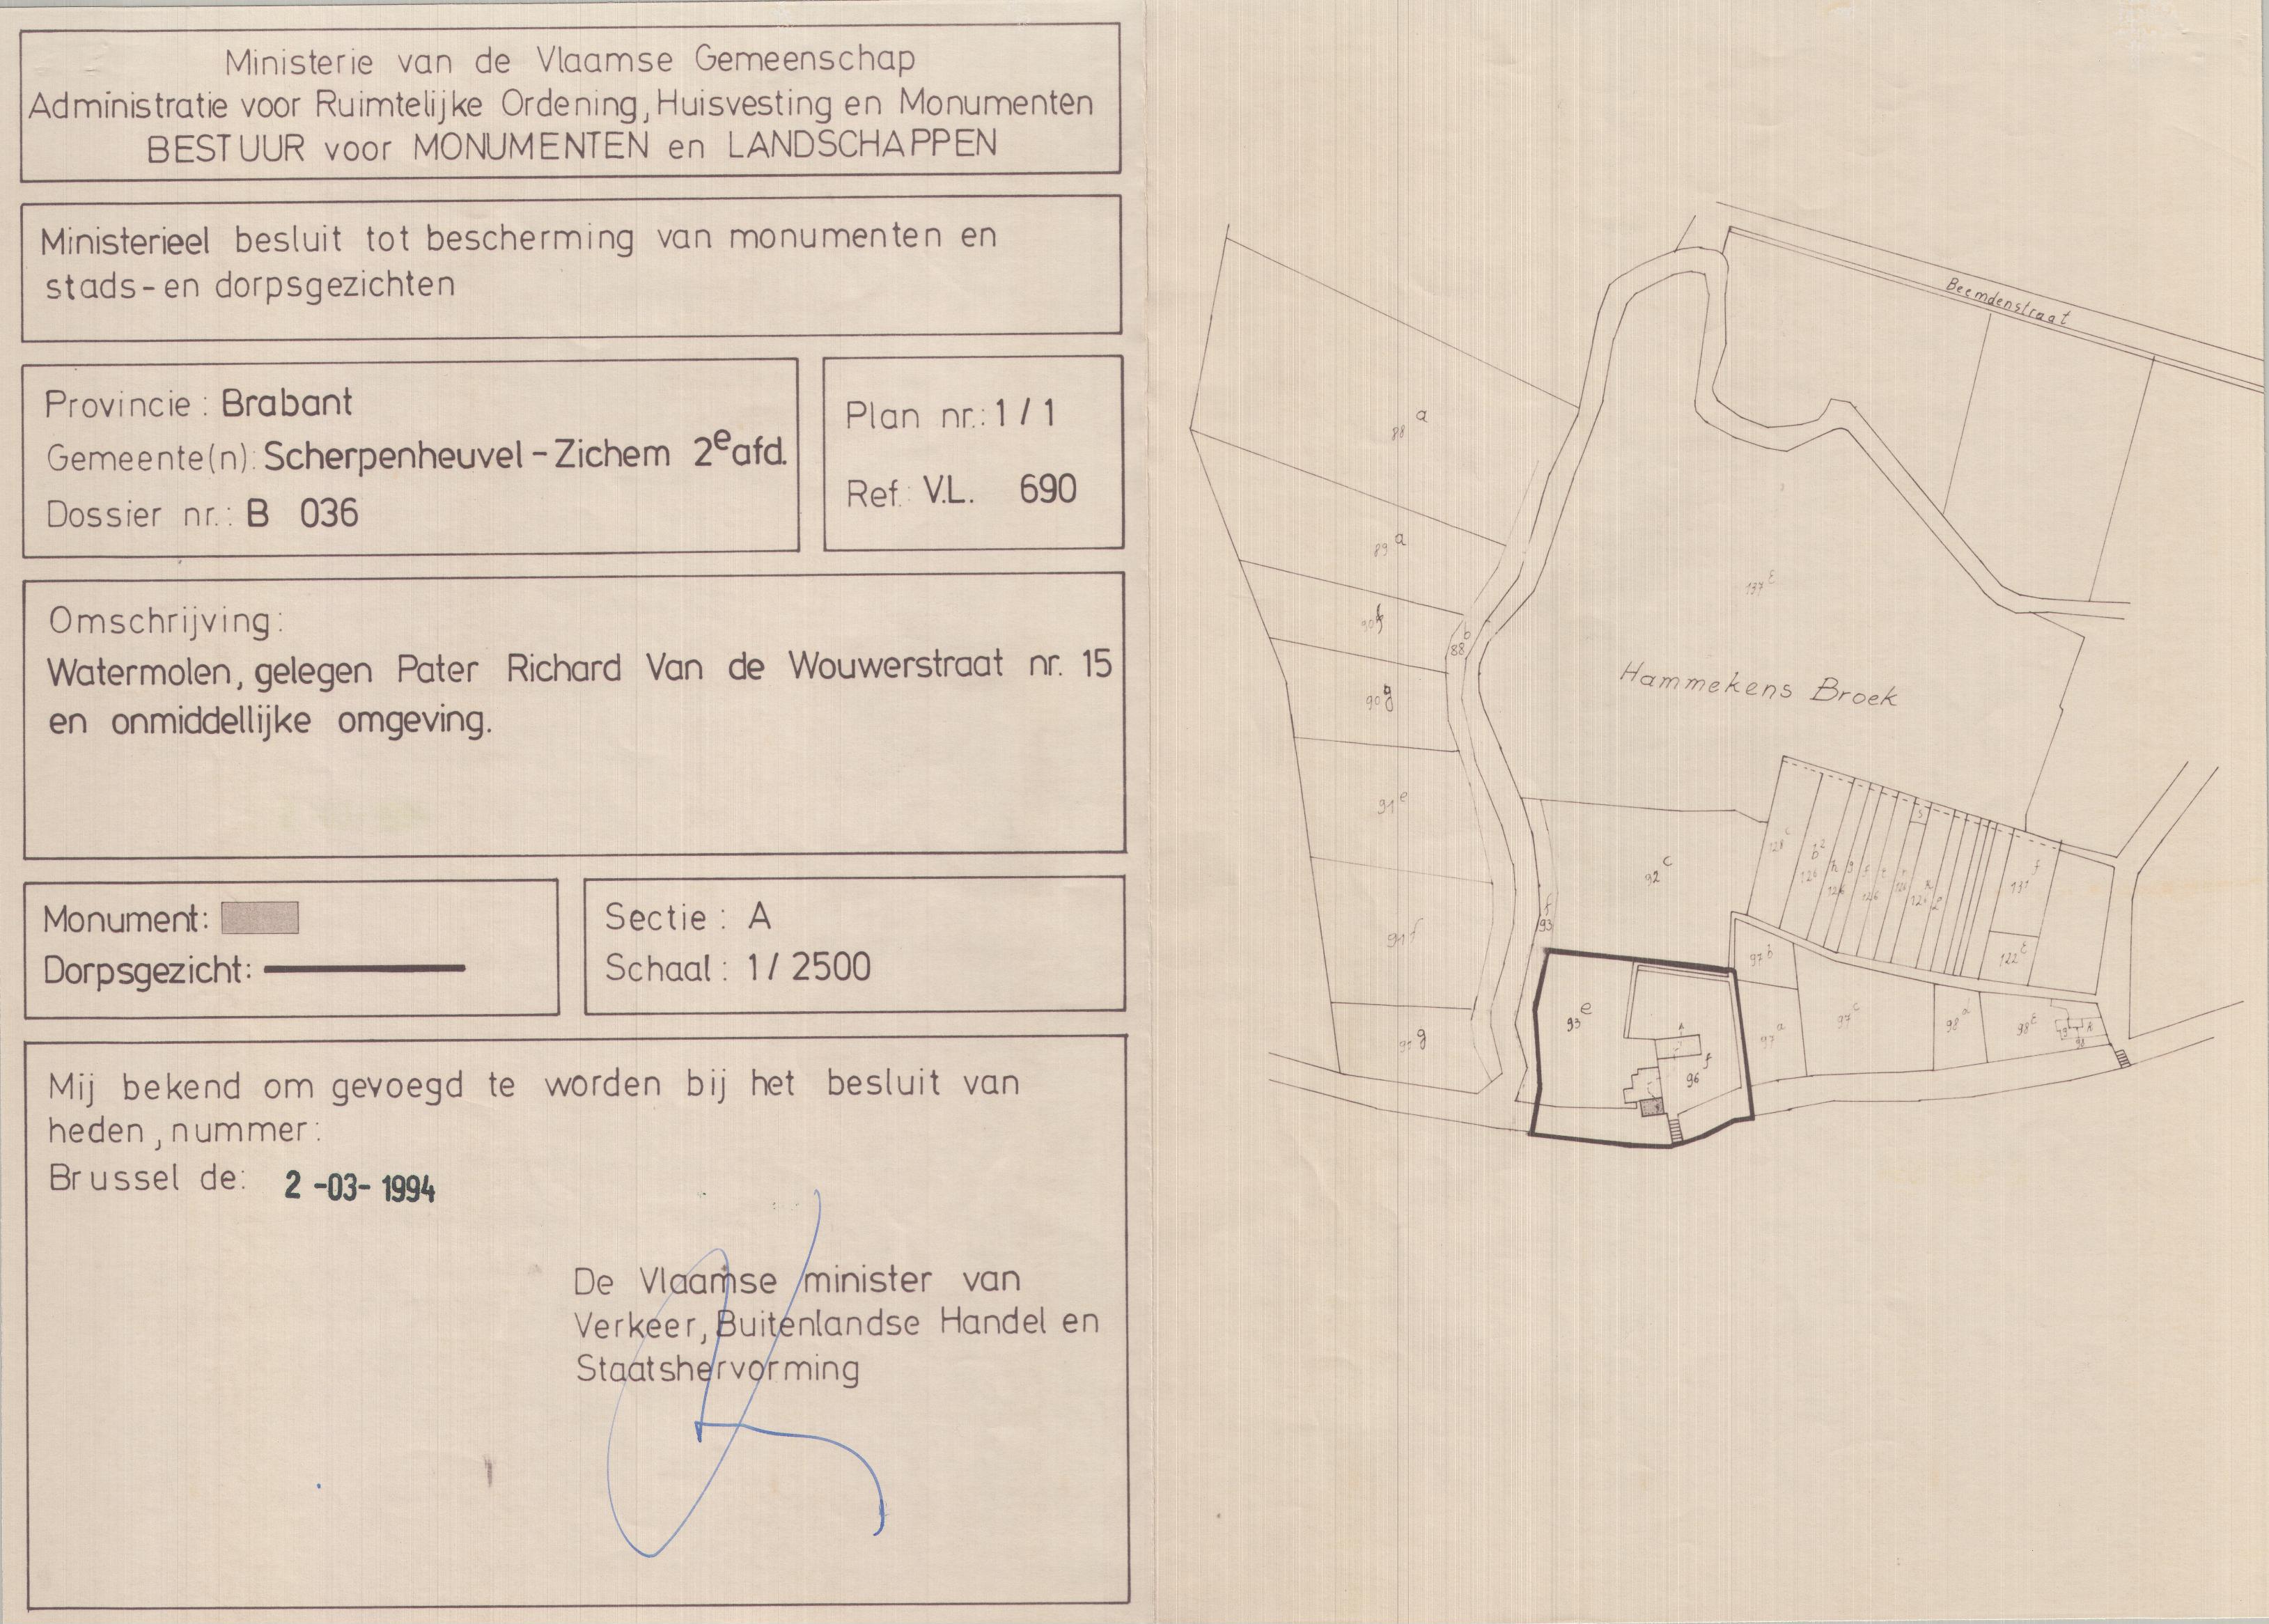 Ministerie van de Vlaamse Gemeenschap
Administratie voor Ruimtelijke Ordening, Huisvesting en Monumenten
BESTUUR voor MONUMENTEN en LANDSCHAPPEN
Ministerieel besluit tot bescherming van monumenten en
stads-en dorpsgezichten
Provincie: Brabant
Gemeente(n): Scherpenheuvel-Zichem 2e afd.
Dossier nr.: B 036
Plan nr.: 1/1
Ref: V.L. 690
Omschrijving:
Watermolen, gelegen Pater Richard Van de Wouwerstraat nr. 15
en onmiddellijke omgeving.
Monument:
Dorpsgezicht:
Sectie: A
Schaal: 1/2500
Mij bekend om gevoegd te worden bij het besluit van
heden, nummer:
Brussel de: 2-03-1994
De Vlaamse minister van
Verkeer, Buitenlandse Handel en
Staatshervorming
Beemdenstraat
88 a
89 a
137 E
88 b
90 g
Hammekens Broek
91 e
92 c
91 f
93 f
131 f
122 E
97 b
93 e
97 a
97 c
98 d
98 E
91 g
96 f